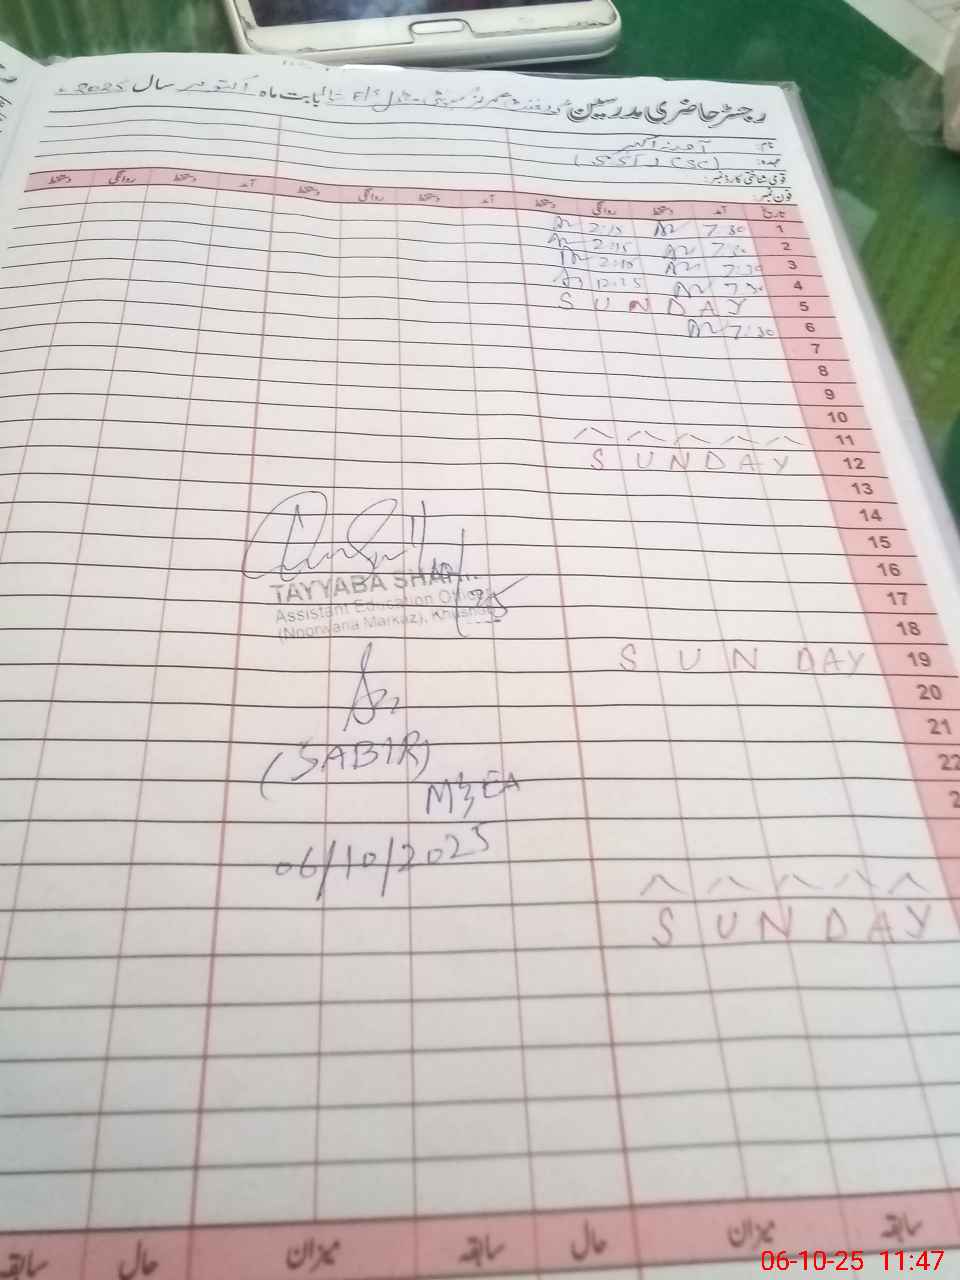 رجسٹر حاضری مدرسین گورنمنٹ بابت ماہ اکتوبر سال 2025ء
نام:
عہدہ: (SST) (SC)
قومی شناختی کارڈ نمبر:
فون نمبر:
تاریخ آمد دستخط روانگی دستخط آمد دستخط روانگی دستخط آمد دستخط روانگی دستخط
1 7:30 2:15
2 7:30 2:15
3 7:30 2:15
4 7:30 12:25
5 SUNDAY
6 7:30
7
8
9
10
11
12 SUNDAY
13
14
15
16
17
18
19 SUNDAY
20
21
22
2
SUNDAY
TAYYABA
Assistant Education
(Noorwana Markaz),
(SABIR)
M&EA
06/10/2025
سابقہ میزان حال سابقہ میزان حال سابقہ
06-10-25 11:47